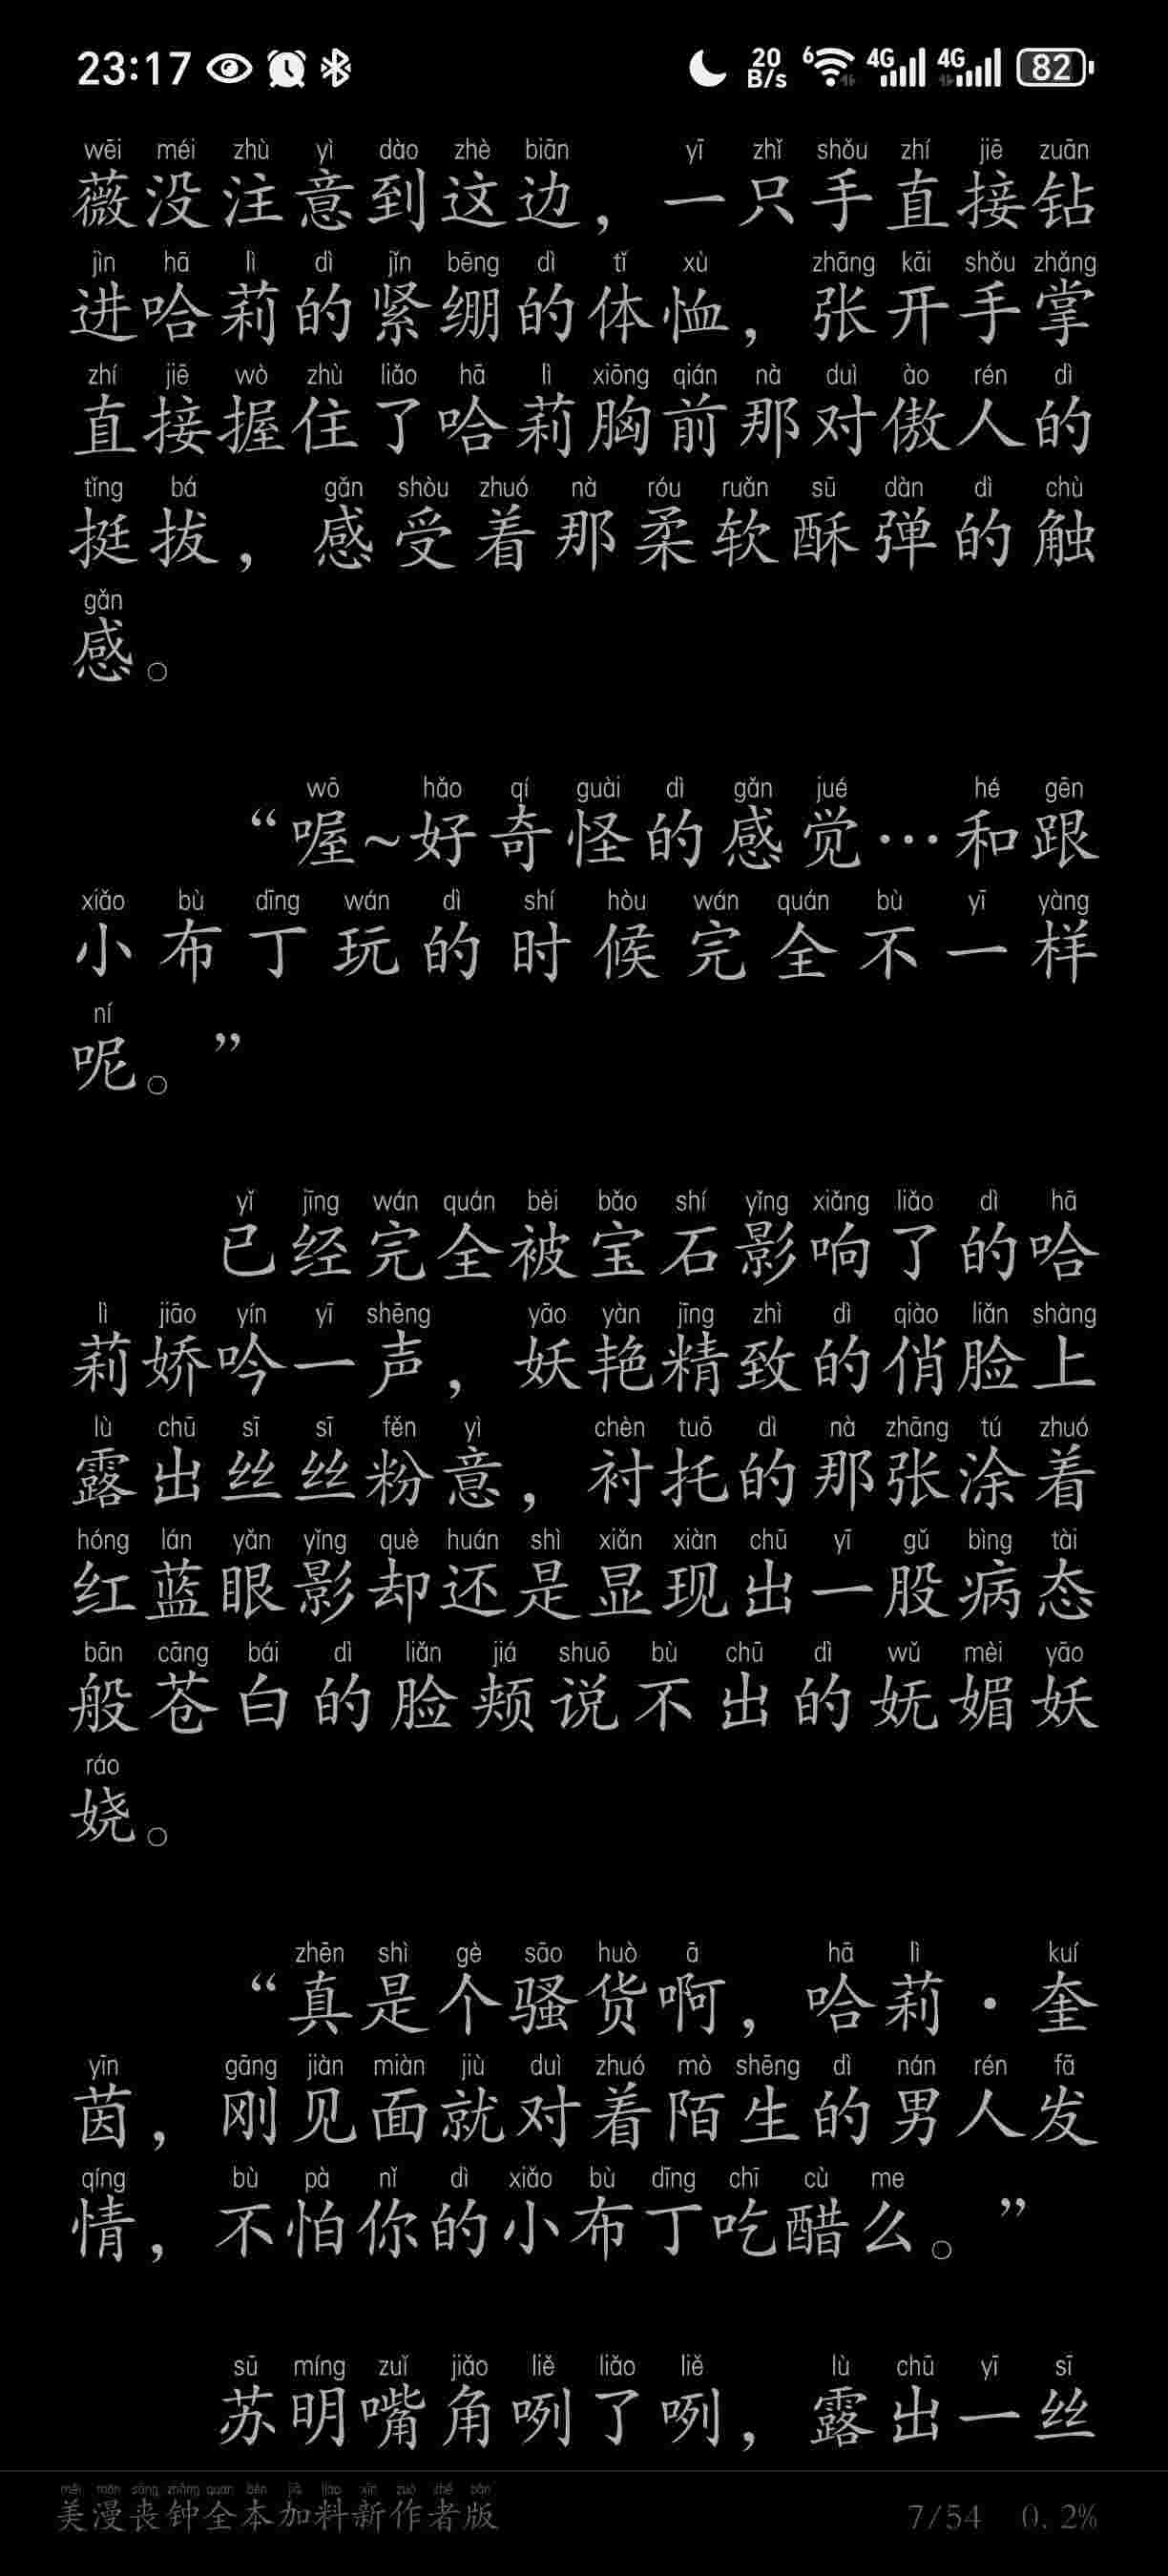 23:17 20 B/s 6 4G 4G 82
wēi méi zhù yì dào zhè biān yī zhǐ shǒu zhí jiē zuān
薇没注意到这边，一只手直接钻
jìn hā lì dì jǐn bēng dì tǐ xù zhāng kāi shǒu zhǎng
进哈莉的紧绷的体恤，张开手掌
zhí jiē wò zhù liǎo hā lì xiōng qián nà duì ào rén dì
直接握住了哈莉胸前那对傲人的
tǐng bá gǎn shòu zhuó nà róu ruǎn sū dàn dì chù
挺拔，感受着那柔软酥弹的触
gǎn
感。
wō hǎo qí guài dì gǎn jué hé gēn
“喔~好奇怪的感觉…和跟
xiǎo bù dīng wán dì shí hòu wán quán bù yī yàng
小布丁玩的时候完全不一样
ní
呢。”
yǐ jīng wán quán bèi bǎo shí yǐng xiǎng liǎo dì hā
已经完全被宝石影响了的哈
lì jiāo yín yī shēng yāo yàn jīng zhì dì qiào liǎn shàng
莉娇吟一声，妖艳精致的俏脸上
lù chū sī sī fěn yì chèn tuō dì nà zhāng tú zhuó
露出丝丝粉意，衬托的那张涂着
hóng lán yǎn yǐng què huán shì xiǎn xiàn chū yī gǔ bìng tài
红蓝眼影却还是显现出一股病态
bān cāng bái dì liǎn jiá shuō bù chū dì wǔ mèi yāo
般苍白的脸颊说不出的妩媚妖
ráo
娆。
zhēn shì gè sāo huò ā hā lì kuí
“真是个骚货啊，哈莉·奎
yīn gāng jiàn miàn jiù duì zhuó mò shēng dì nán rén fā
茵，刚见面就对着陌生的男人发
qíng bù pà nǐ dì xiǎo bù dīng chī cù me
情，不怕你的小布丁吃醋么。”
sū míng zuǐ jiǎo liě liǎo liě lù chū yī sī
苏明嘴角咧了咧，露出一丝
měi màn sāng zhōng quán běn jiā liào xīn zuò zhě bǎn
美漫丧钟全本加料新作者版 7/54 0.2%